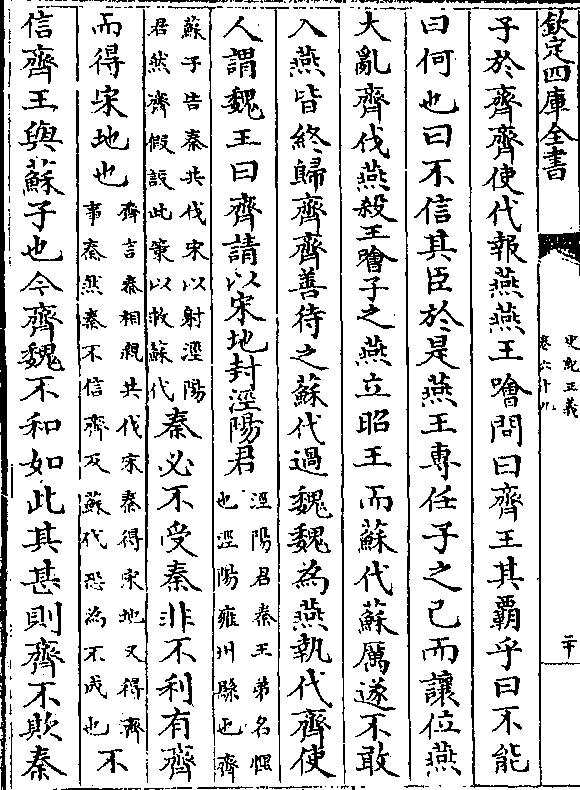 欽定四庫全書
史記正義
卷六十九
二十
子於齊齊使代報燕燕王噲問曰齊王其霸乎曰不能
曰何也曰不信其臣於是燕王專任子之已而讓位燕
大亂齊伐燕殺王噲子之燕立昭王而蘇代蘇厲遂不敢
入燕皆終歸齊齊善待之蘇代過魏魏為燕執代齊使
人謂魏王曰齊請以宋地封涇陽君涇陽君秦王弟名悝也涇陽雍州縣也齊
蘇子告秦共伐宋以封涇陽君然齊假設此策以救蘇代秦必不受秦非不利有齊
而得宋地也齊言秦相親共伐宋秦得宋地又得齊事秦然秦不信齊及蘇代恐為不成也不
信齊王與蘇子也今齊魏不和如此其甚則齊不欺秦